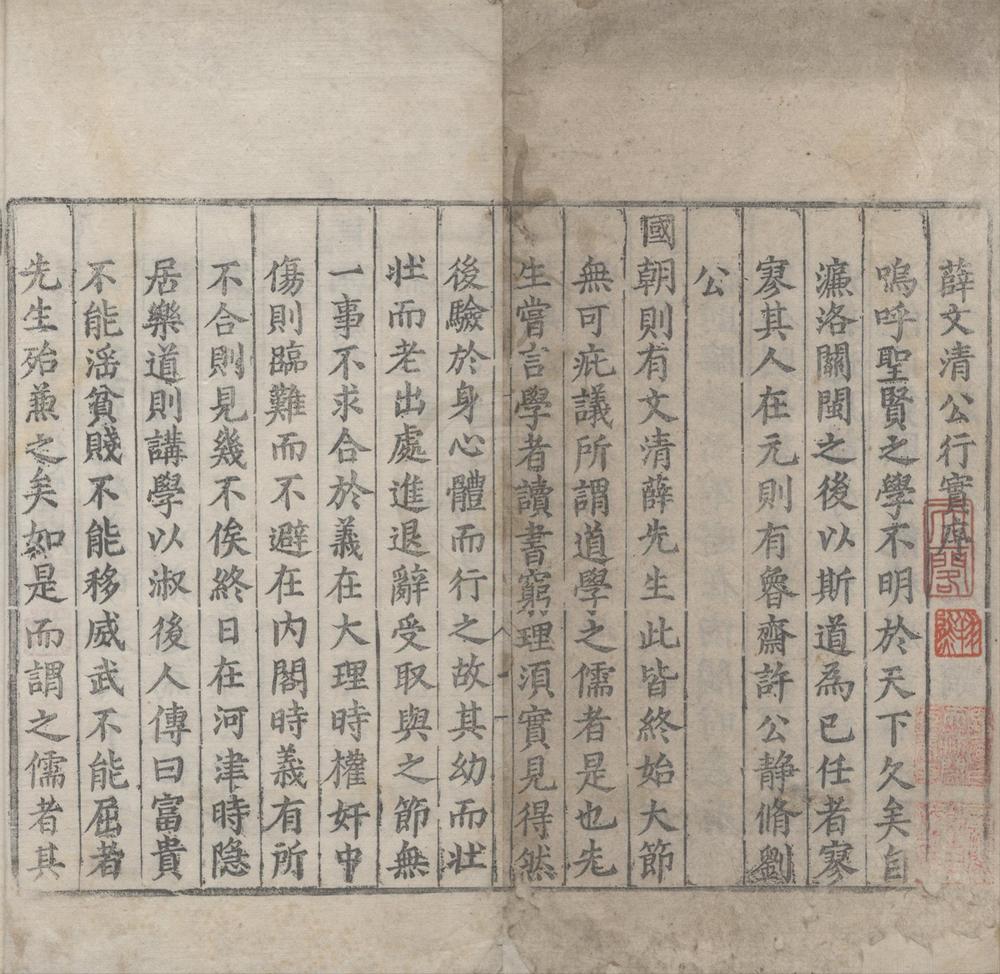 薛文清公行實序
嗚呼聖賢之學不明於天下久矣自
濂洛關閩之後以斯道為已任者寥
寥其人在元則有魯齋許公静脩劉
公
國朝則有文清薛先生此皆終始大節
無可疵議所謂道學之儒者是也先
生嘗言學者讀書窮理須實見得然
後驗於身心體而行之故其幼而壯
壯而老出處進退辭受取與之節無
一事不求合於義在大理時權奸中
傷則臨難而不避在内閣時義有所
不合則見幾不俟終日在河津時隐
居樂道則講學以淑後人傳曰富貴
不能淫貧賤不能移威武不能屈者
先生殆兼之矣如是而謂之儒者其